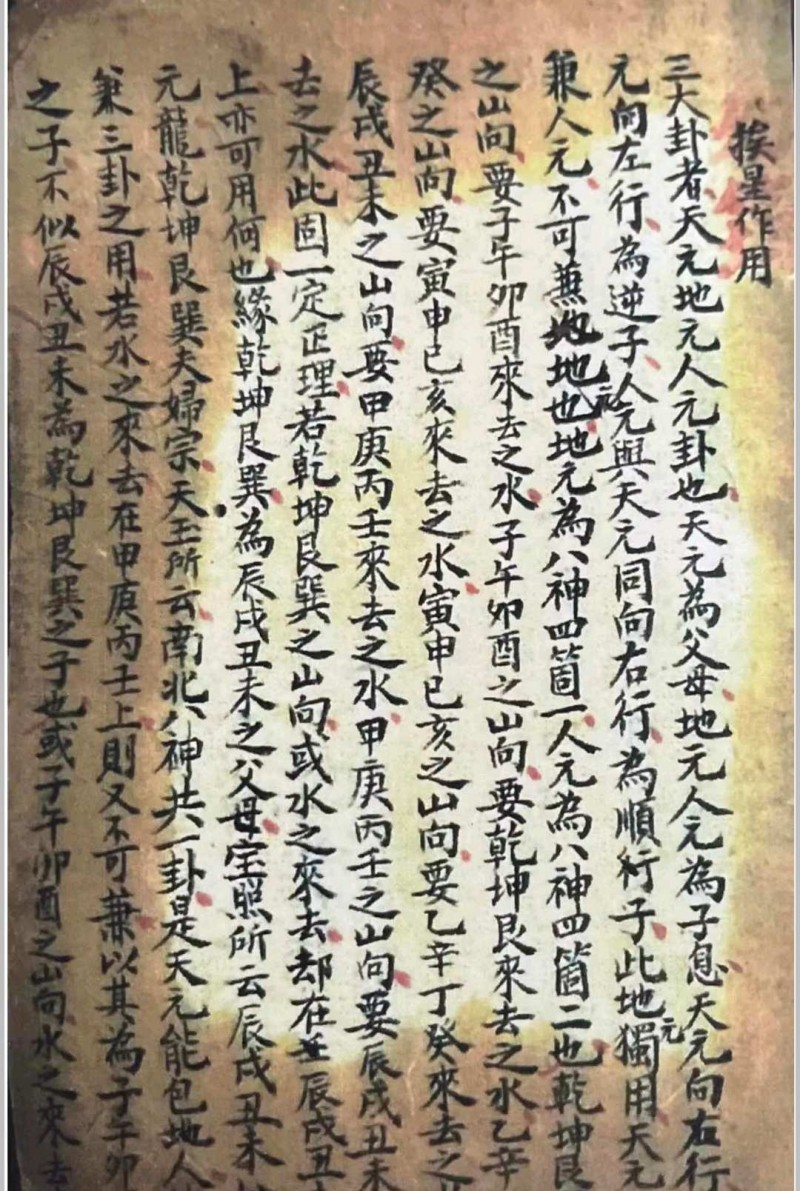 挨星作用
三大卦者天元地元人元卦也天元為父母地元人元為子息天元向右行
元向左行為逆子人元與天元同向右行為順行子此地元獨用天元
兼人元不可蕪地地元也地元為八神四箇一人元為八神四箇二也乾坤艮
之山向要子午卯酉來去之水子午卯酉之山向要乾坤艮來去之水乙辛
癸之山向要寅申巳亥來去之水寅申巳亥之山向要乙辛丁癸來去之
辰戌丑未之山向要甲庚丙壬來去之水甲庚丙壬之山向要辰戌丑未
去之水此固一定正理若乾坤艮巽之山向或水之來去却在辰戌丑
上亦可用何也緣乾坤艮巽為辰戌丑未之父母宝照所云辰戌丑未
元龍乾坤艮巽夫婦宗天玉所云南北八神共一卦是天元能包地人
兼三卦之用若水之來去在甲庚丙壬上則又不可兼以其為子午卯
之子不似辰戌丑未為乾坤艮巽之子也或子午卯酉之山向水之來去